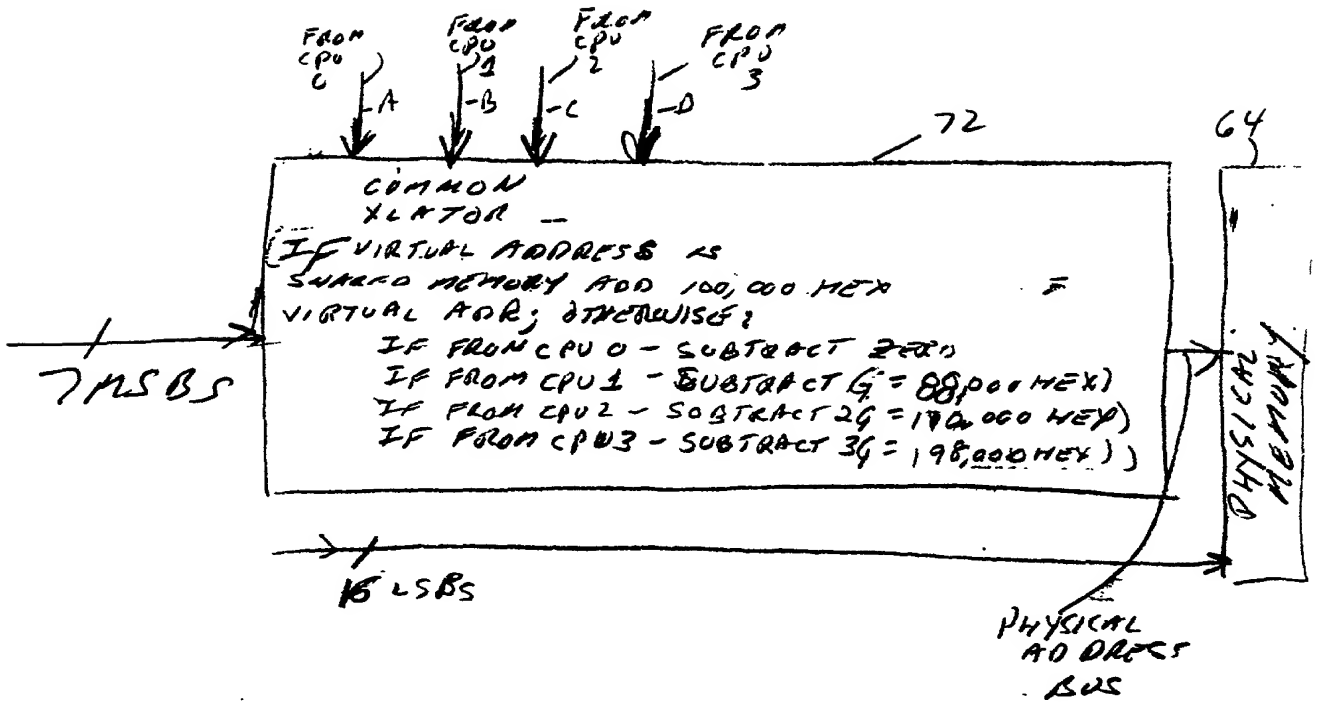 FROM CPU 0
FROM CPU 1
FROM CPU 2
FROM CPU 3
A
B
C
D
72
64
COMMON
XLATOR —
(IF VIRTUAL ADDRESS IS
SHARED MEMORY ADD 100,000 HEX =
VIRTUAL ADR; OTHERWISE:
IF FROM CPU 0 - SUBTRACT ZERO
IF FROM CPU1 - SUBTRACT G = 88,000 HEX)
IF FROM CPU2 - SUBTRACT 2G = 110,000 HEX)
IF FROM CPU3 - SUBTRACT 3G = 198,000 HEX))
7 MSBS
PHYSICAL
MEMORY
LSBS
PHYSICAL
ADDRESS
BUS